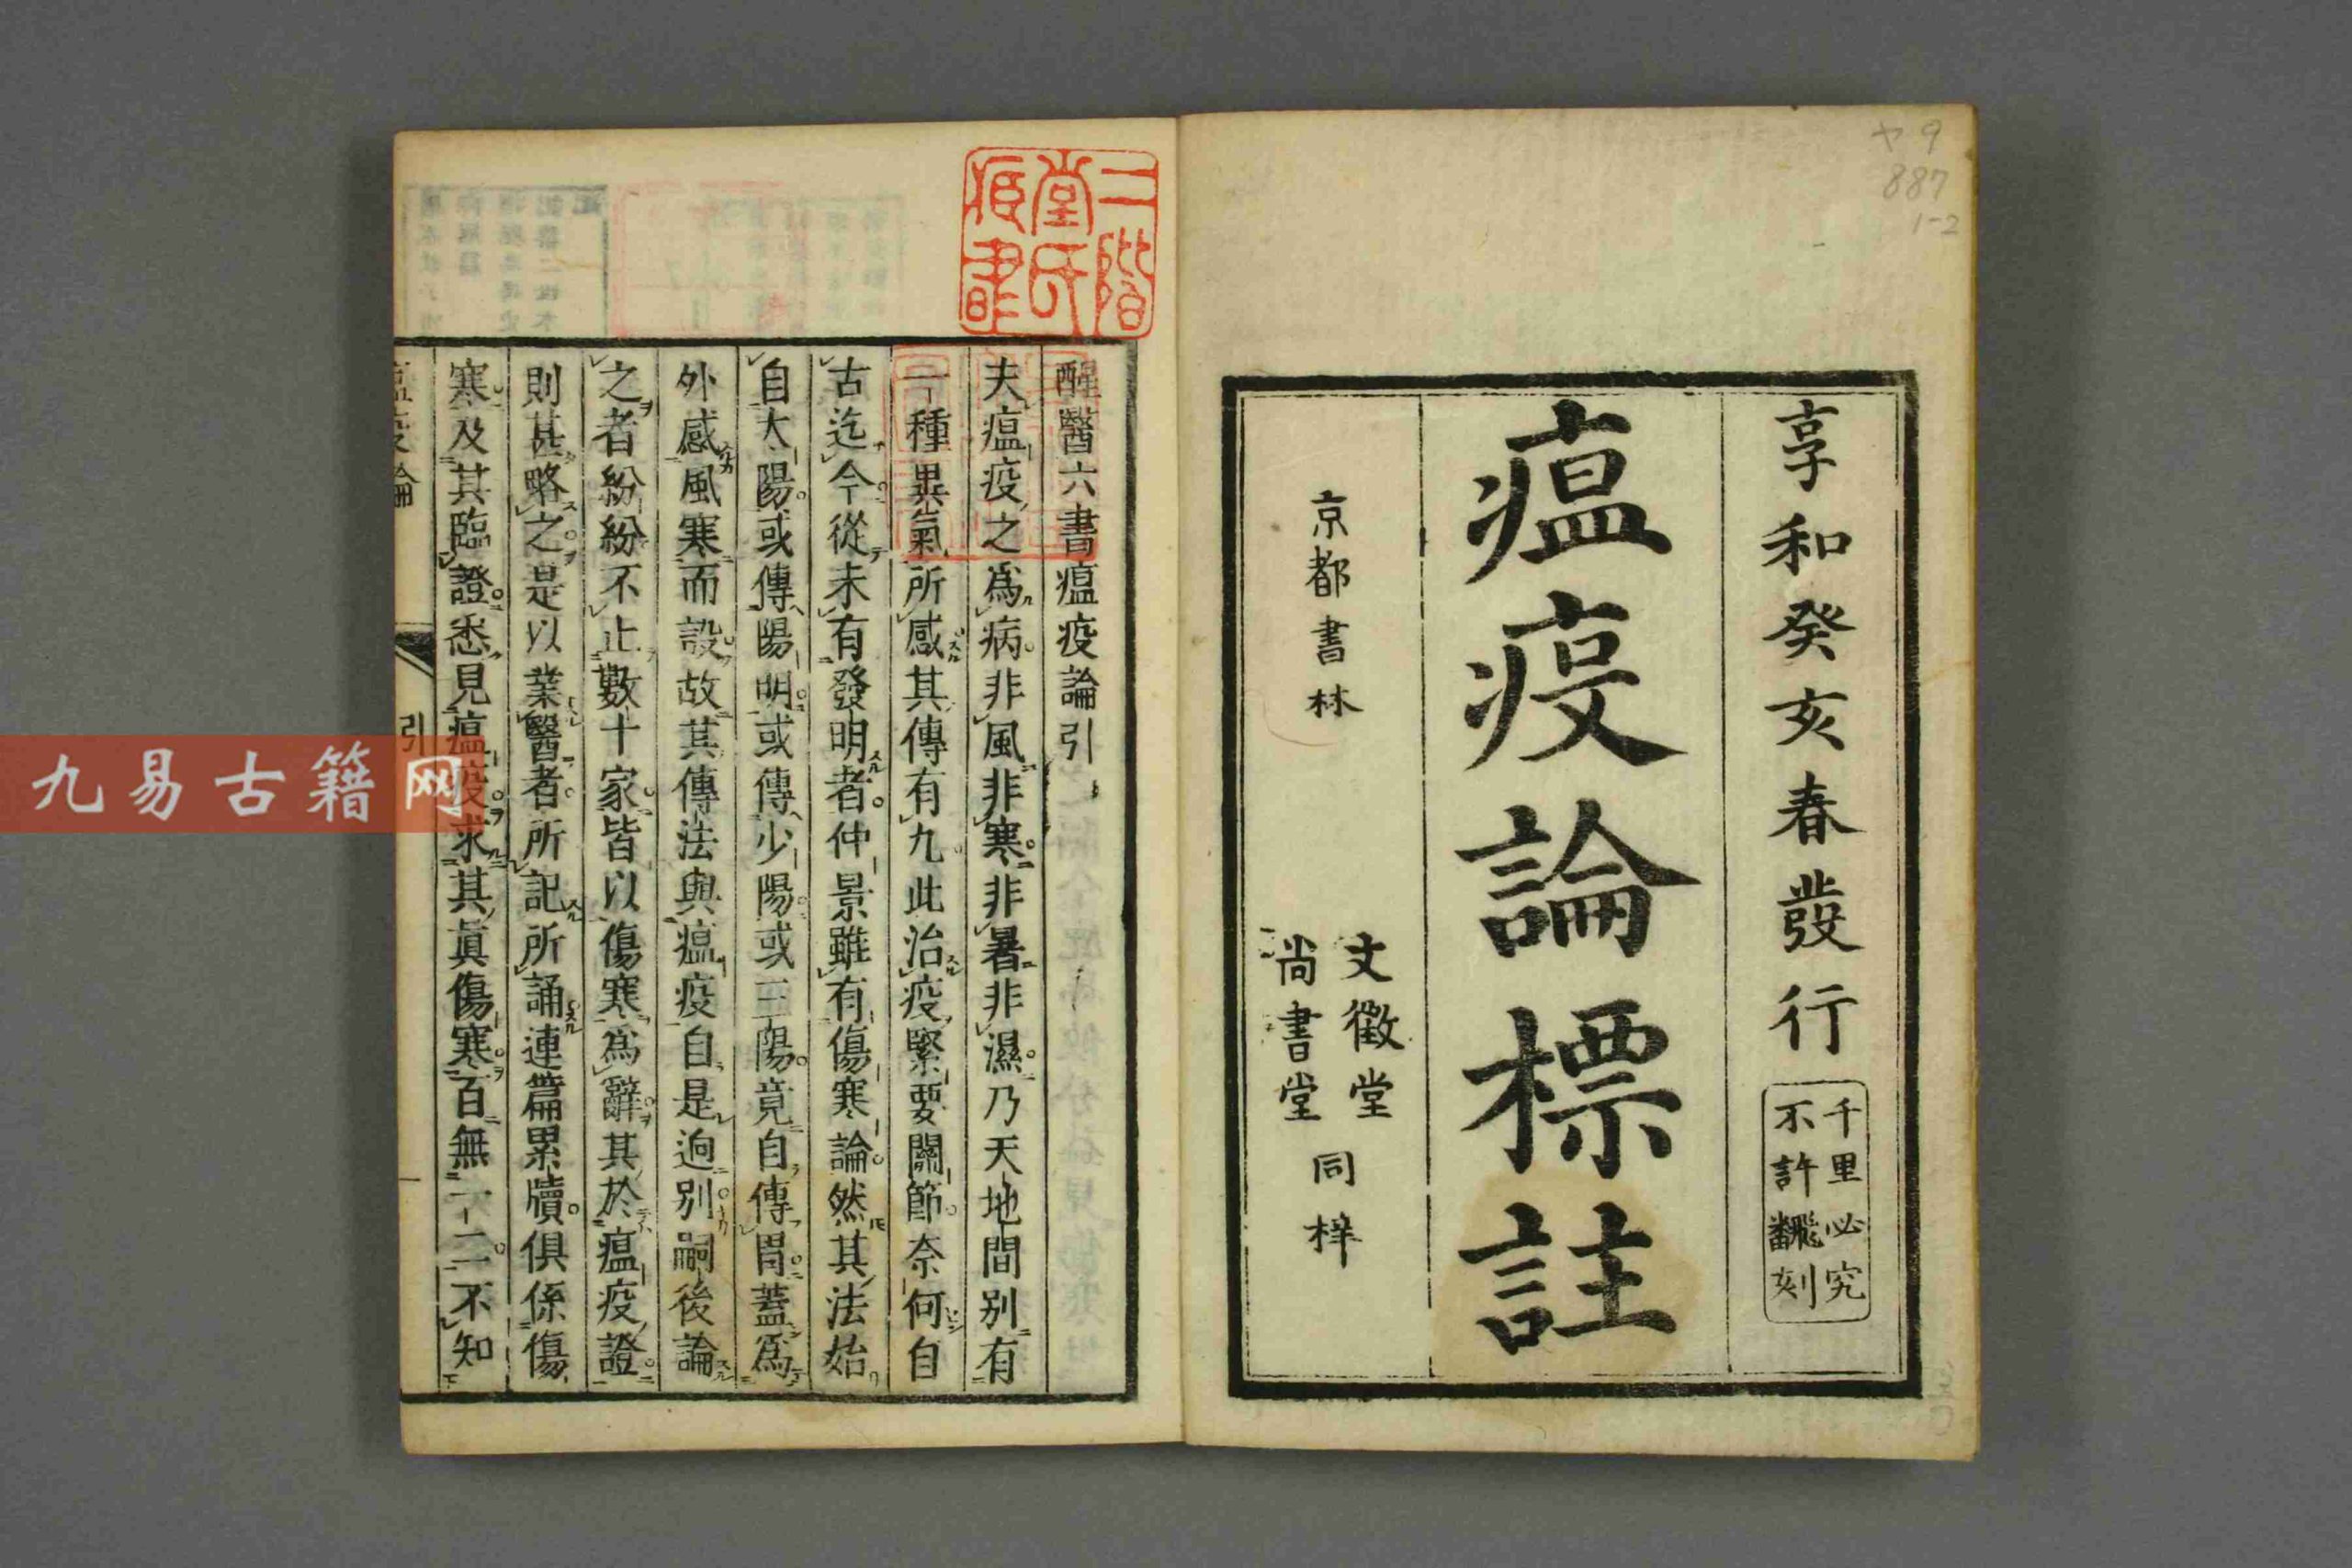 ヤ9
887
1-2
享和癸亥春發行
千里必究
不許飜刻
瘟疫論標註
京都書林
文徵堂
尚書堂
同梓
二階
堂氏
醒醫六書瘟疫論引
夫瘟疫之爲病非風非寒非暑非濕乃天地間別有
一種異氣所感其傳有九此治疫緊要關節奈何自
古迄今從未有發明者仲景雖有傷寒論然其法始
自太陽或傳陽明或傳少陽或三陽竟自傳胃蓋爲
外感風寒而設故其傳法與瘟疫自是迥別嗣後論
之者紛紛不止數十家皆以傷寒爲辭其於瘟疫證
則甚略之是以業醫者所記所誦連篇累牘俱係傷
寒及其臨證悉見瘟疫求其眞傷寒百無一二不知
引
九易古籍网